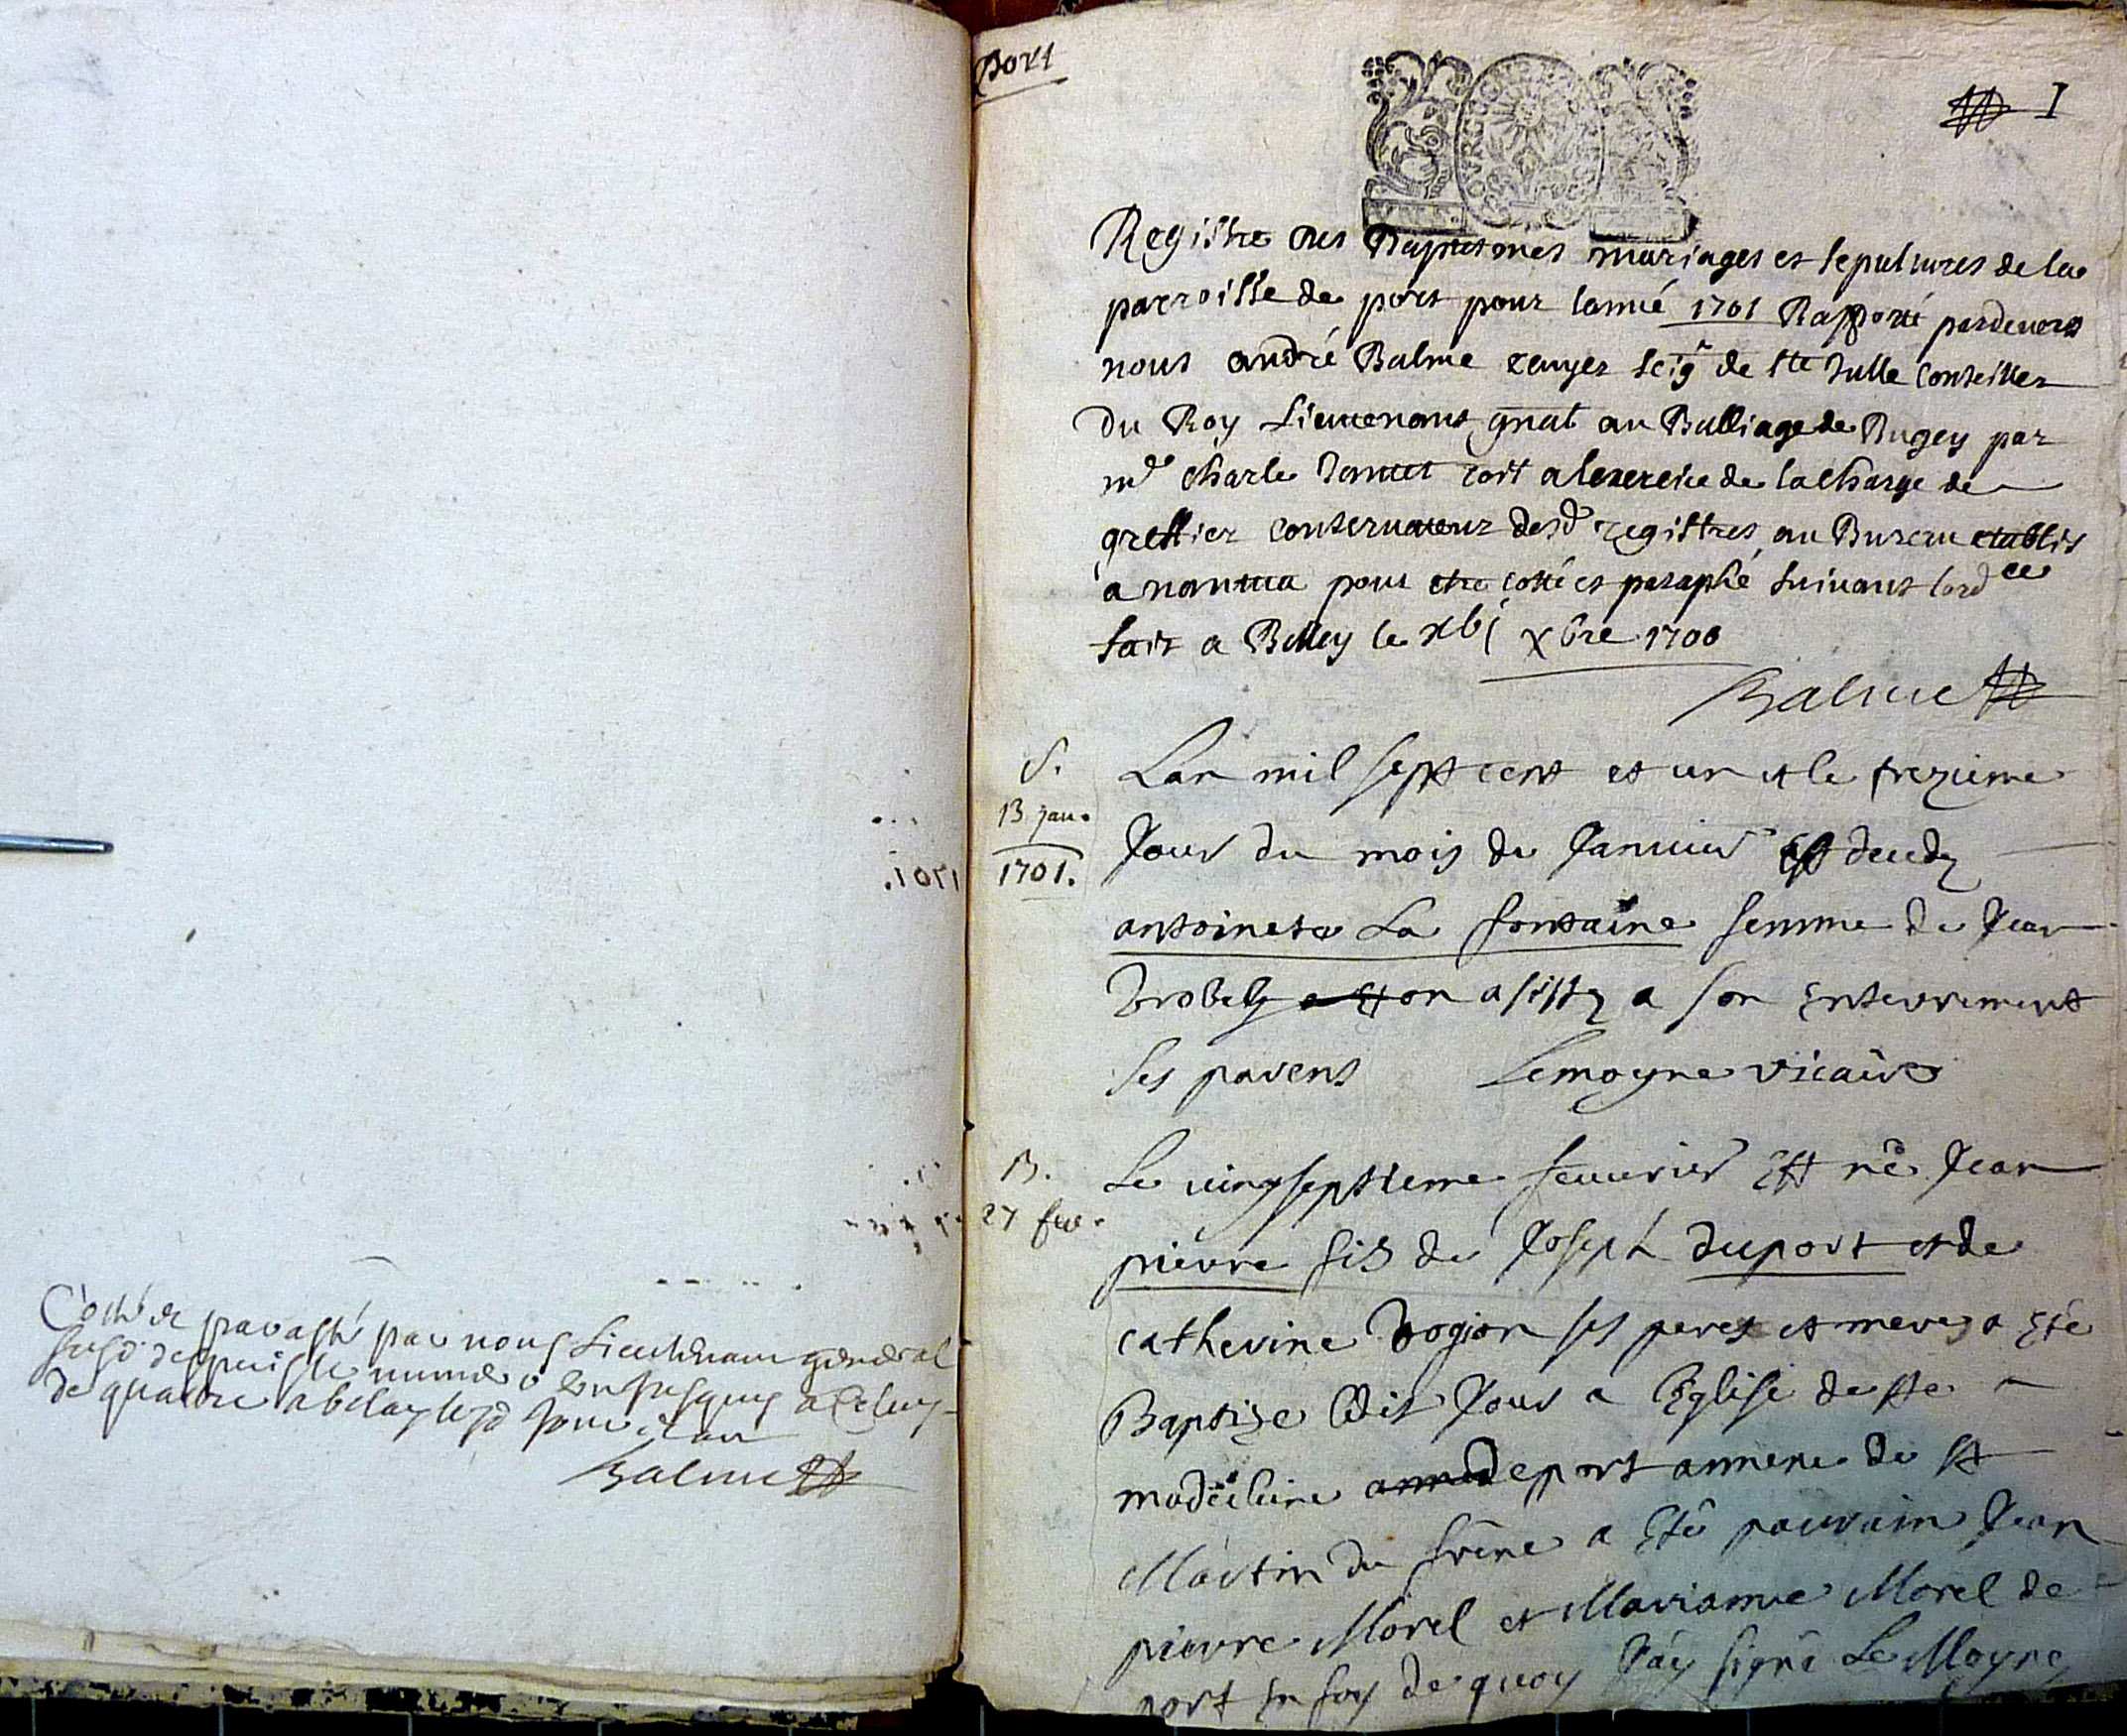 Cotté et paraphé par nous Lieutenant general
susd. despuis le numero un jusques a celuy
de quattre a belay lesd jour et an
Balme
Port
I
Registre des Baptesmes mariages et sepultures de la
parroisse de port pour lanné 1701 Rapporté pardevers
nous andré Balme ecuyer seigr de Ste Julle conseiller
du Roy Lieutenant gnal au Balliage de Bugey par
me charle commis a lexercice de la charge de
greffier conservateur desd registres au Bureau etablis
a nantua pour etre cotté et paraphé suivant lordce
fait a Belley le xbi xbre 1700
Balme
S.
13 jan.
1701.
Lan mil sept cent et un et le trezieme
Jour du mois de Janvier est decedez
antoinete La fontaine femme de Jean
on asistez a son Enterrement
ses parens Lemoyne vicaire
B.
27 fev.
Le vingseptieme feuvrier Est né Jean
pierre fils de Joseph duport et de
catherine ses peres et meres a Eté
Baptize ledit Jour a l'Eglise de ste
madeleine de port annexe de st
Martin du frêne a Eté parrain Jean
pierre Morel et Marianne Morel de
port En foy de quoy J'ay signé Le Moyne